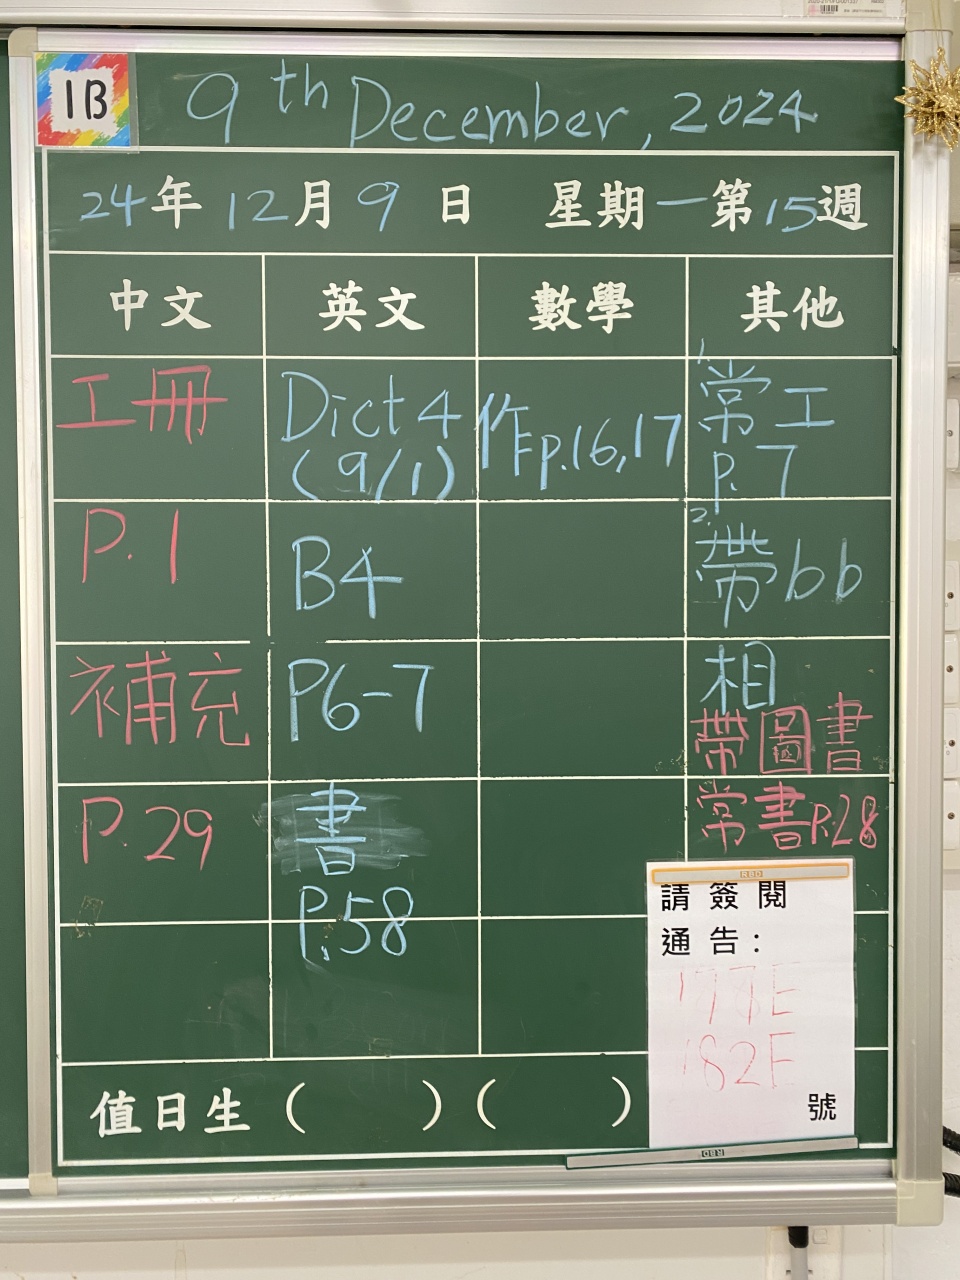 1B
9th December, 2024
24年12月9日 星期一第15週
中文 英文 數學 其他
工冊
P.1
補充
P.29
Dict 4
(9/1)
B4
P6-7
書
P.58
作p.16,17
1. 常工
p. 7
2. 帶bb
相
帶圖書
常書P.28
RBD
請簽閱
通告:
182E
號
RBD
值日生( )( )